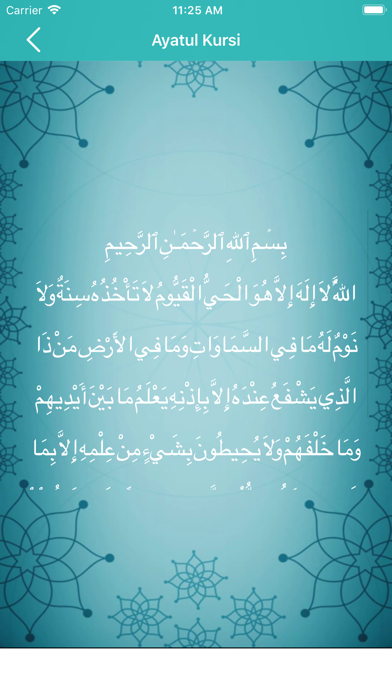 Carrier 11:25 AM
Ayatul Kursi
بِسْمِ ٱللهِ ٱلرَّحْمَـٰنِ ٱلرَّحِيمِ
اللهُ لاَ إِلَهَ إِلاَّ هُوَ الْحَيُّ الْقَيُّومُ لاَ تَأْخُذُهُ سِنَةٌ وَلاَ
نَوْمٌ لَهُ مَا فِي السَّمَاوَاتِ وَمَا فِي الأَرْضِ مَنْ ذَا
الَّذِي يَشْفَعُ عِنْدَهُ إِلاَّ بِإِذْنِهِ يَعْلَمُ مَا بَيْنَ أَيْدِيهِمْ
وَمَا خَلْفَهُمْ وَلاَ يُحِيطُونَ بِشَيْءٍ مِنْ عِلْمِهِ إِلاَّ بِمَا